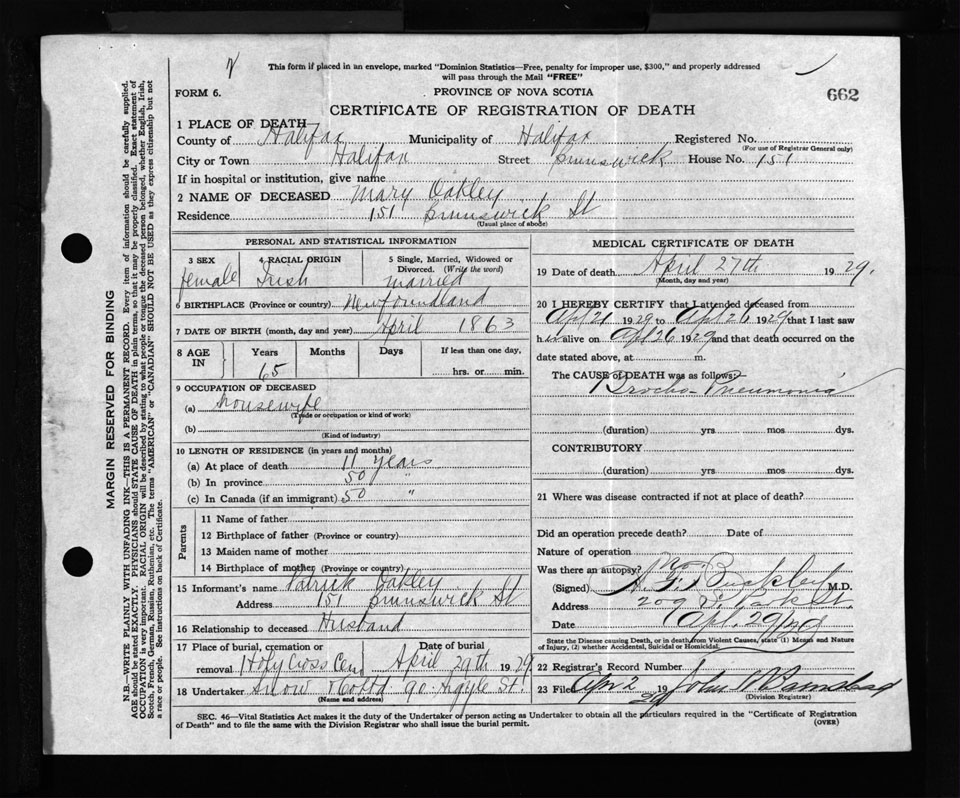 This form if placed in an envelope, marked "Dominion Statistics—Free, penalty for improper use, $300," and properly addressed
will pass through the Mail "FREE"
FORM 6.
PROVINCE OF NOVA SCOTIA
662
CERTIFICATE OF REGISTRATION OF DEATH
1 PLACE OF DEATH
County of Halifax Municipality of Halifax Registered No.
(For use of Registrar General only)
City or Town Halifax Street Brunswick House No. 151
If in hospital or institution, give name
2 NAME OF DECEASED Mary Oakley
Residence 151 Brunswick St
(Usual place of abode)
PERSONAL AND STATISTICAL INFORMATION
3 SEX 4 RACIAL ORIGIN 5 Single, Married, Widowed or
Divorced. (Write the word)
Female Irish Married
6 BIRTHPLACE (Province or country) Newfoundland
7 DATE OF BIRTH (month, day and year) April 1863
8 AGE IN Years Months Days If less than one day,
65 hrs. or min.
9 OCCUPATION OF DECEASED
(a) housewife
(Trade or occupation or kind of work)
(b)
(Kind of industry)
10 LENGTH OF RESIDENCE (in years and months)
(a) At place of death 11 years
(b) In province 50 "
(c) In Canada (if an immigrant) 50 "
Parents
11 Name of father
12 Birthplace of father (Province or country)
13 Maiden name of mother
14 Birthplace of mother (Province or country)
15 Informant's name Patrick Oakley
Address 151 Brunswick St
16 Relationship to deceased Husband
17 Place of burial, cremation or Date of burial
removal Holy Cross Cem April 29th 1929
18 Undertaker Snow & Co Ltd 90 Argyle St.
(Name and address)
MEDICAL CERTIFICATE OF DEATH
19 Date of death April 27th 1929.
(Month, day and year)
20 I HEREBY CERTIFY that I attended deceased from
Apl 21 1929 to Apl 26 1929 that I last saw
h alive on Apl 26 1929 and that death occurred on the
date stated above, at m.
The CAUSE of DEATH was as follows:
Broncho-Pneumonia
(duration) yrs mos dys.
CONTRIBUTORY
(duration) yrs mos dys.
21 Where was disease contracted if not at place of death?
Did an operation precede death? Date of
Nature of operation
Was there an autopsy? No.
(Signed) Buckley M.D.
Address 209
Date Apl. 29/29
State the Disease causing Death, or in death from Violent Causes, state (1) Means and Nature
of Injury, (2) whether Accidental, Suicidal or Homicidal.
22 Registrar's Record Number
23 Filed 19 John
(Division Registrar)
SEC. 46—Vital Statistics Act makes it the duty of the Undertaker or person acting as Undertaker to obtain all the particulars required in the "Certificate of Registration
of Death" and to file the same with the Division Registrar who shall issue the burial permit.
(OVER)
MARGIN RESERVED FOR BINDING
N.B.—WRITE PLAINLY WITH UNFADING INK—THIS IS A PERMANENT RECORD. Every item of information should be carefully supplied.
AGE should be stated EXACTLY. PHYSICIANS should STATE CAUSE OF DEATH in plain terms, so that it may be properly classified. Exact statement of
OCCUPATION is very important. RACIAL ORIGIN will be described by stating to what people or tongue the deceased person belonged, whether English, Irish,
Scotch, French, German, Russian, Ruthenian, etc. The terms "AMERICAN" or "CANADIAN" SHOULD NOT BE USED as they express citizenship but not
a race or people. See instructions on back of Certificate.